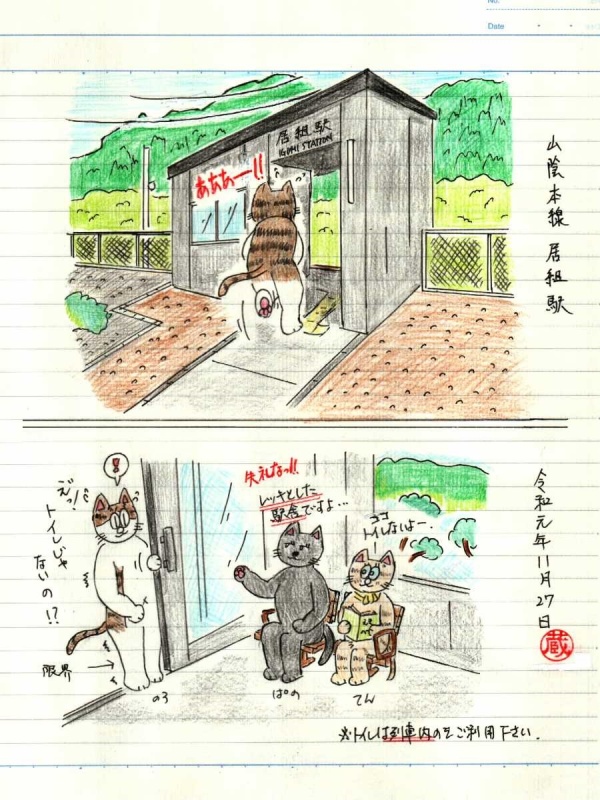 No.
Date
山陰本線 居組駅
居組駅
IGUMI STATION
あああー!!
令和元年11月27日
蔵
!
えっ!
トイレじゃ
ないの!?
限界
失礼なっ!!
レッキとした
駅舎ですよ…
ココ
トイレないよー.
のろ
ぱの
てん
※トイレは列車内のをご利用下さい.